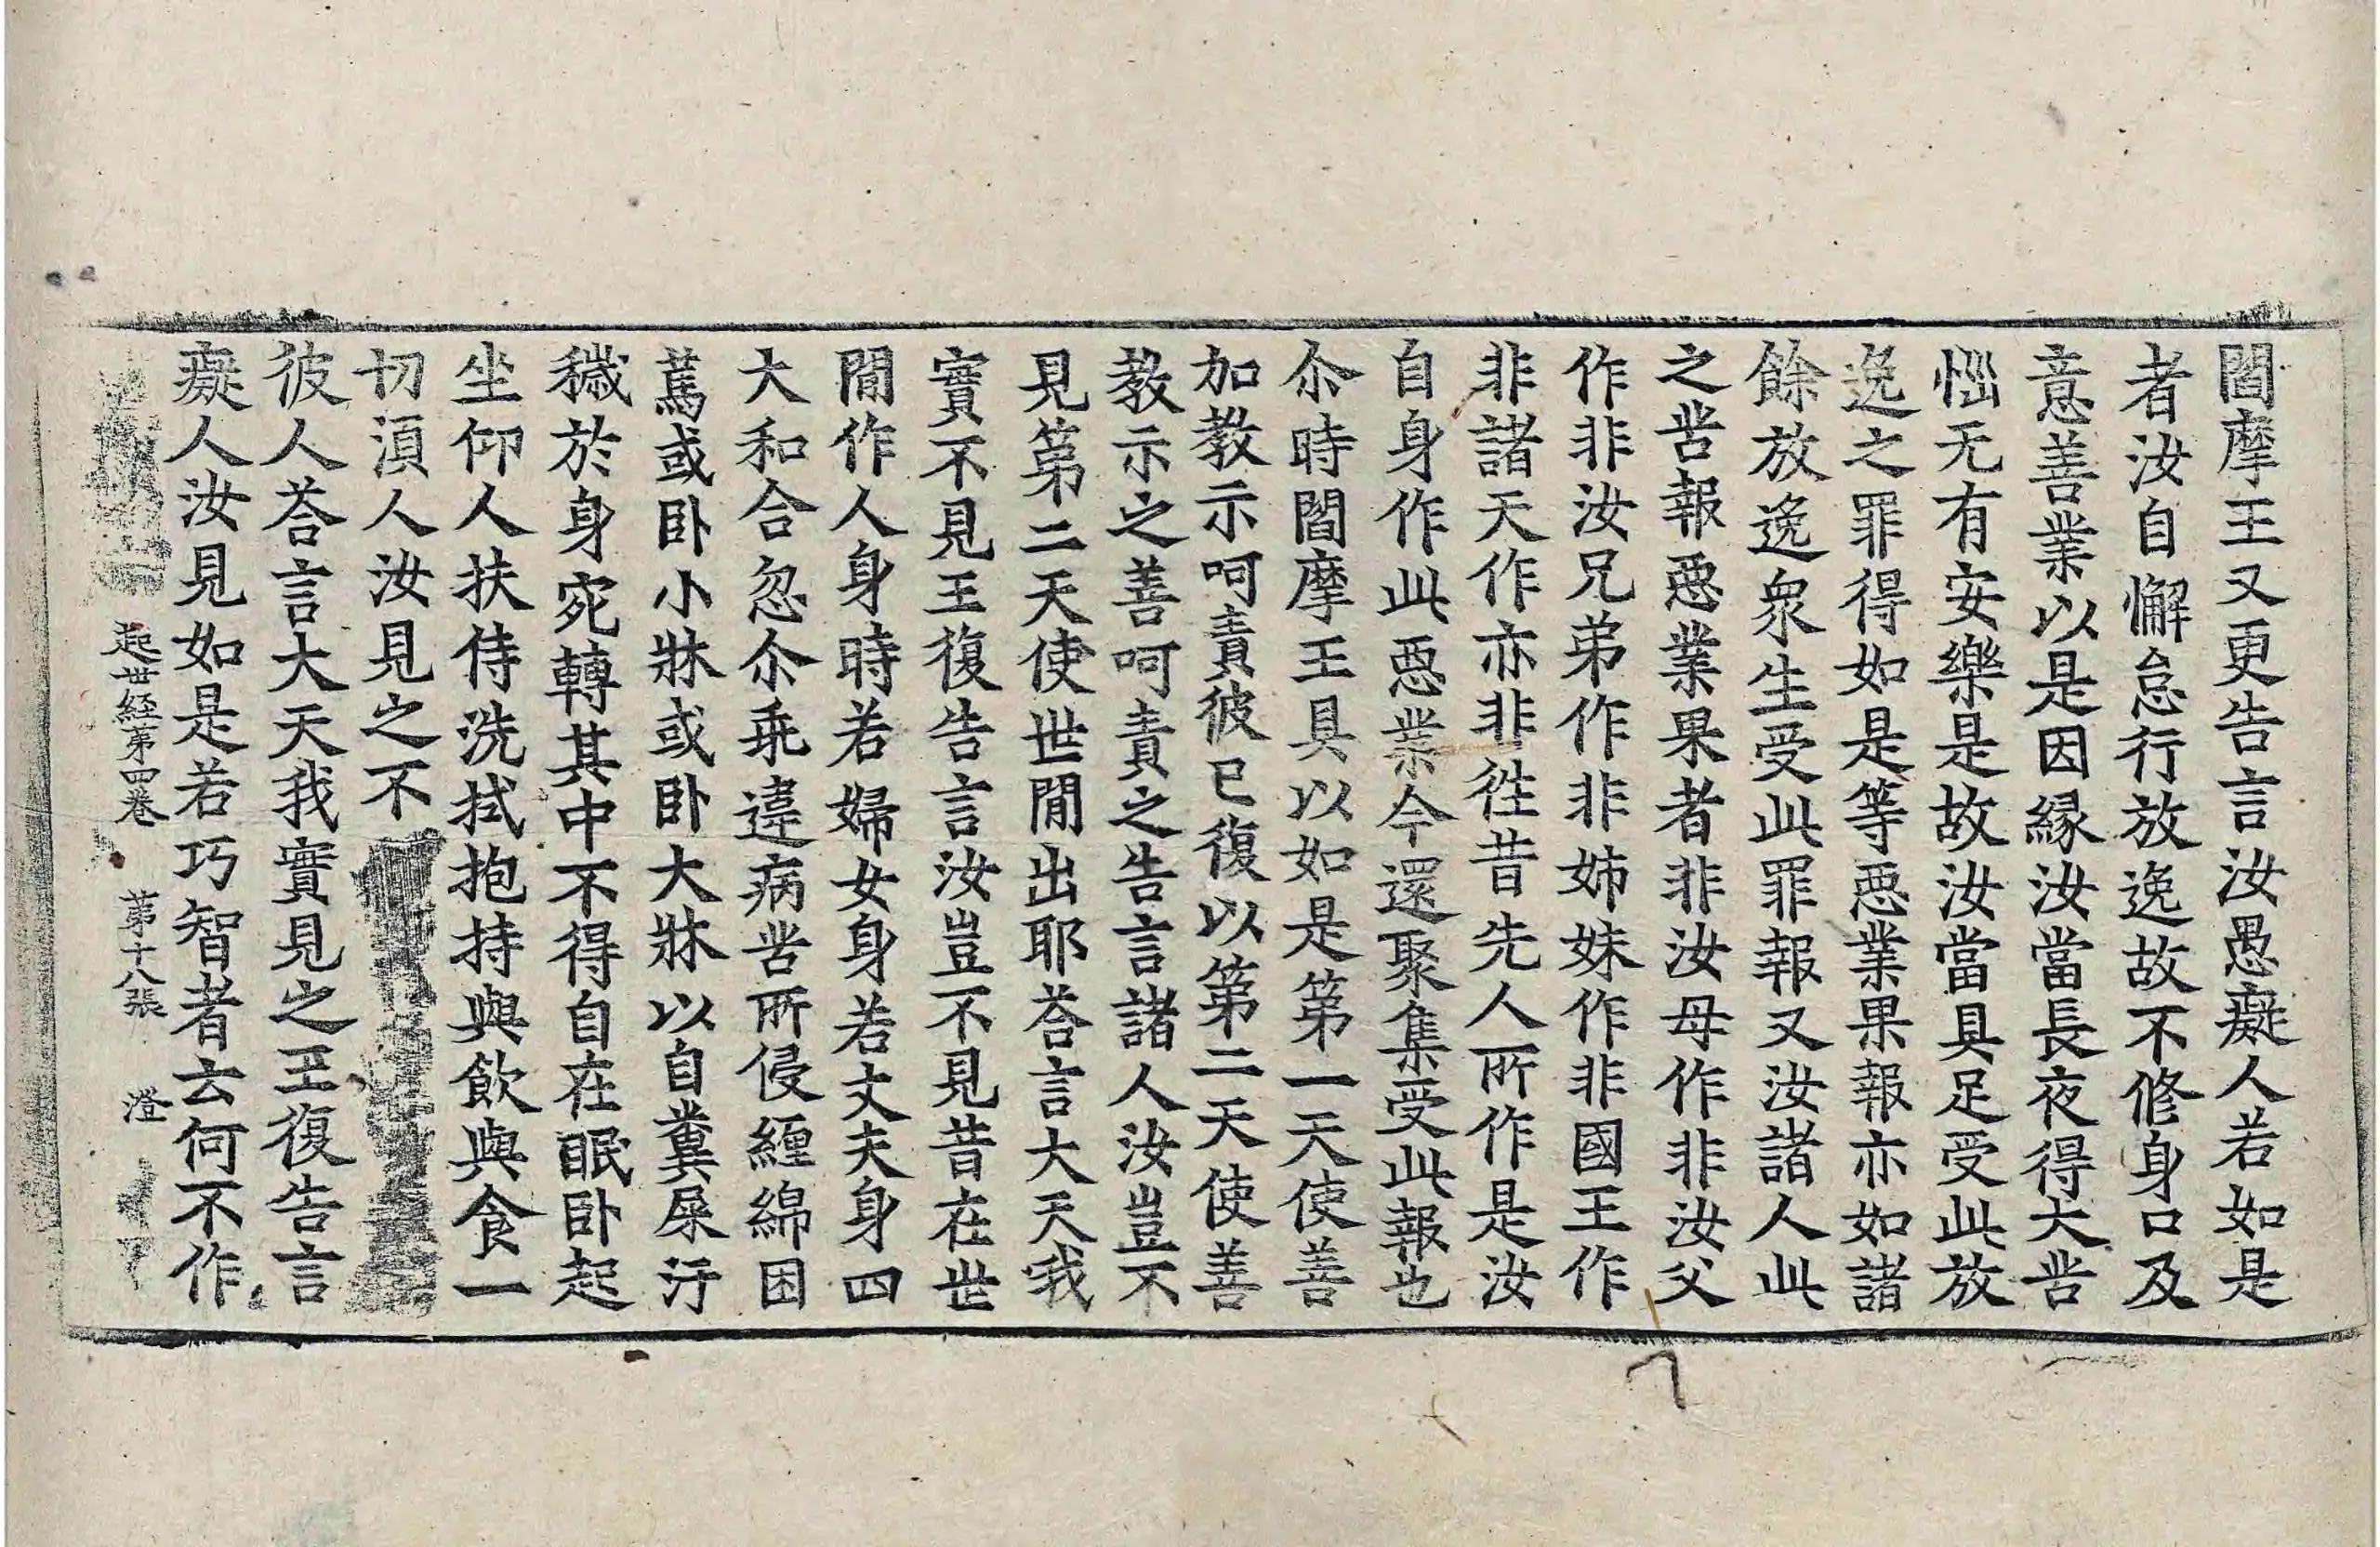 閻摩王又更告言汝愚癡人若如是
者汝自懈怠行放逸故不修身口及
意善業以是因緣汝當長夜得大苦
惱无有安樂是故汝當具足受此放
逸之罪得如是等惡業果報亦如諸
餘放逸衆生受此罪報又汝諸人此
之苦報惡業果者非汝母作非汝父
作非汝兄弟作非姉妹作非國王作
非諸天作亦非徃昔先人所作是汝
自身作此惡業今還聚集受此報也
尒時閻摩王具以如是第一天使善
加教示呵責彼已復以第二天使善
教示之善呵責之告言諸人汝豈不
見第二天使世閒出耶荅言大天我
實不見王復告言汝豈不見昔在世
閒作人身時若婦女身若丈夫身四
大和合忽尒乖違病苦所侵纏綿困
篤或卧小牀或卧大牀以自糞屎汙
穢於身宛轉其中不得自在眠卧起
坐仰人扶侍洗拭抱持與飲與食一
切湏人汝見之不
彼人荅言大天我實見之王復告言
癡人汝見如是若巧智者云何不作
起世經第四卷 第十八張 澄